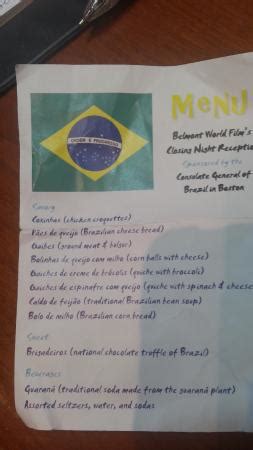 ORDEM E PROGRESSO
MENU
Belmont World Film's
Closing Night Reception
Sponsored by the
Consulate General of
Brazil in Boston
Savory
Coxinhas (chicken croquettes)
Pães de queijo (Brazilian cheese bread)
Quibes (ground meat & bulgur)
Bolinhas de queijo com milho (corn balls with cheese)
Quiches de creme de brócolis (quiche with broccoli)
Quiches de espinafre com queijo (quiche with spinach & cheese
Caldo de feijão (traditional Brazilian bean soup)
Bolo de milho (Brazilian corn bread)
Sweet
Brigadeiros (national chocolate truffle of Brazil)
Beverages
Guaraná (traditional soda made from the guaraná plant)
Assorted seltzers, water, and sodas